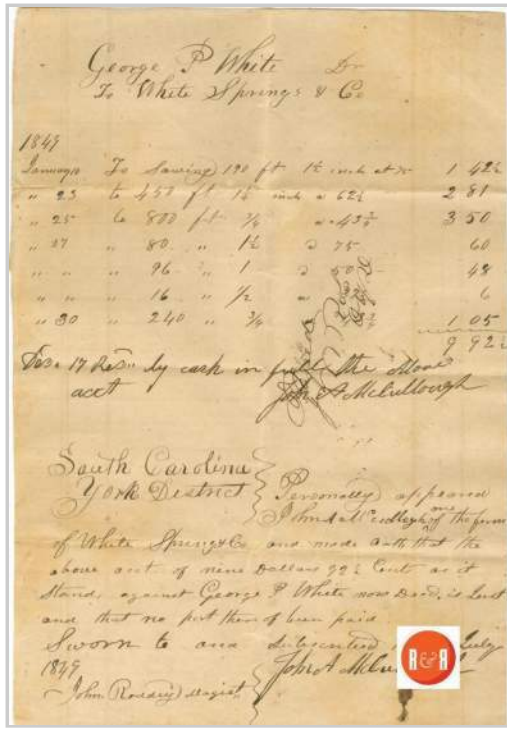 George P White Dr
To White Springs & Co
1849
January To Sawing 190 ft 1½ inch at 75 1 42½
" 23 to 450 ft 1¼ inch a 62½ 2 81
" 25 to 800 ft ¾ a 43¾ 3 50
" 27 " 80 " 1½ a 75 60
" " " 96 " 1 a 50 48
" " " 16 " ½ a 6
" 30 " 240 " ¾ 1 05
9 92½
17 by cash in full the above
acct John A McCullough
South Carolina
York District
Personally appeared
John A McCullough one of the firm
of White Springs & Co and made oath that the
above act of nine Dollars 92½ Cents as it
Stands against George P White now Dead, is Just
and that no part there of been paid
Sworn to and Subscribed July
1849 John A
John Magist
R&R